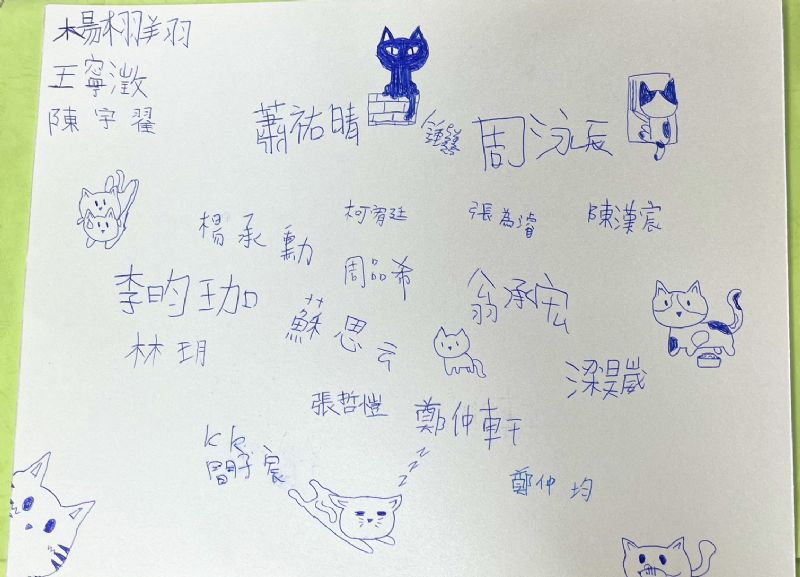 楊栩羽
王寧澂
陳宇翟
蕭祐晴
周泳辰
楊承勳
柯宥廷
張為睿
陳漢宸
周品希
李昀珈
翁承宏
林玥
蘇思云
梁昊崴
張哲愷
鄭仲軒
kk
宸
鄭仲均
zzzz